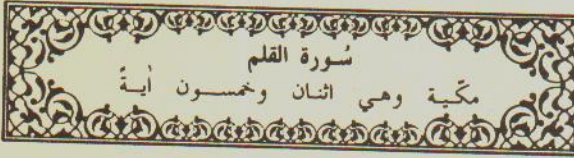 سُورة القلم
مكّية وهي اثنان وخمسون أيةً